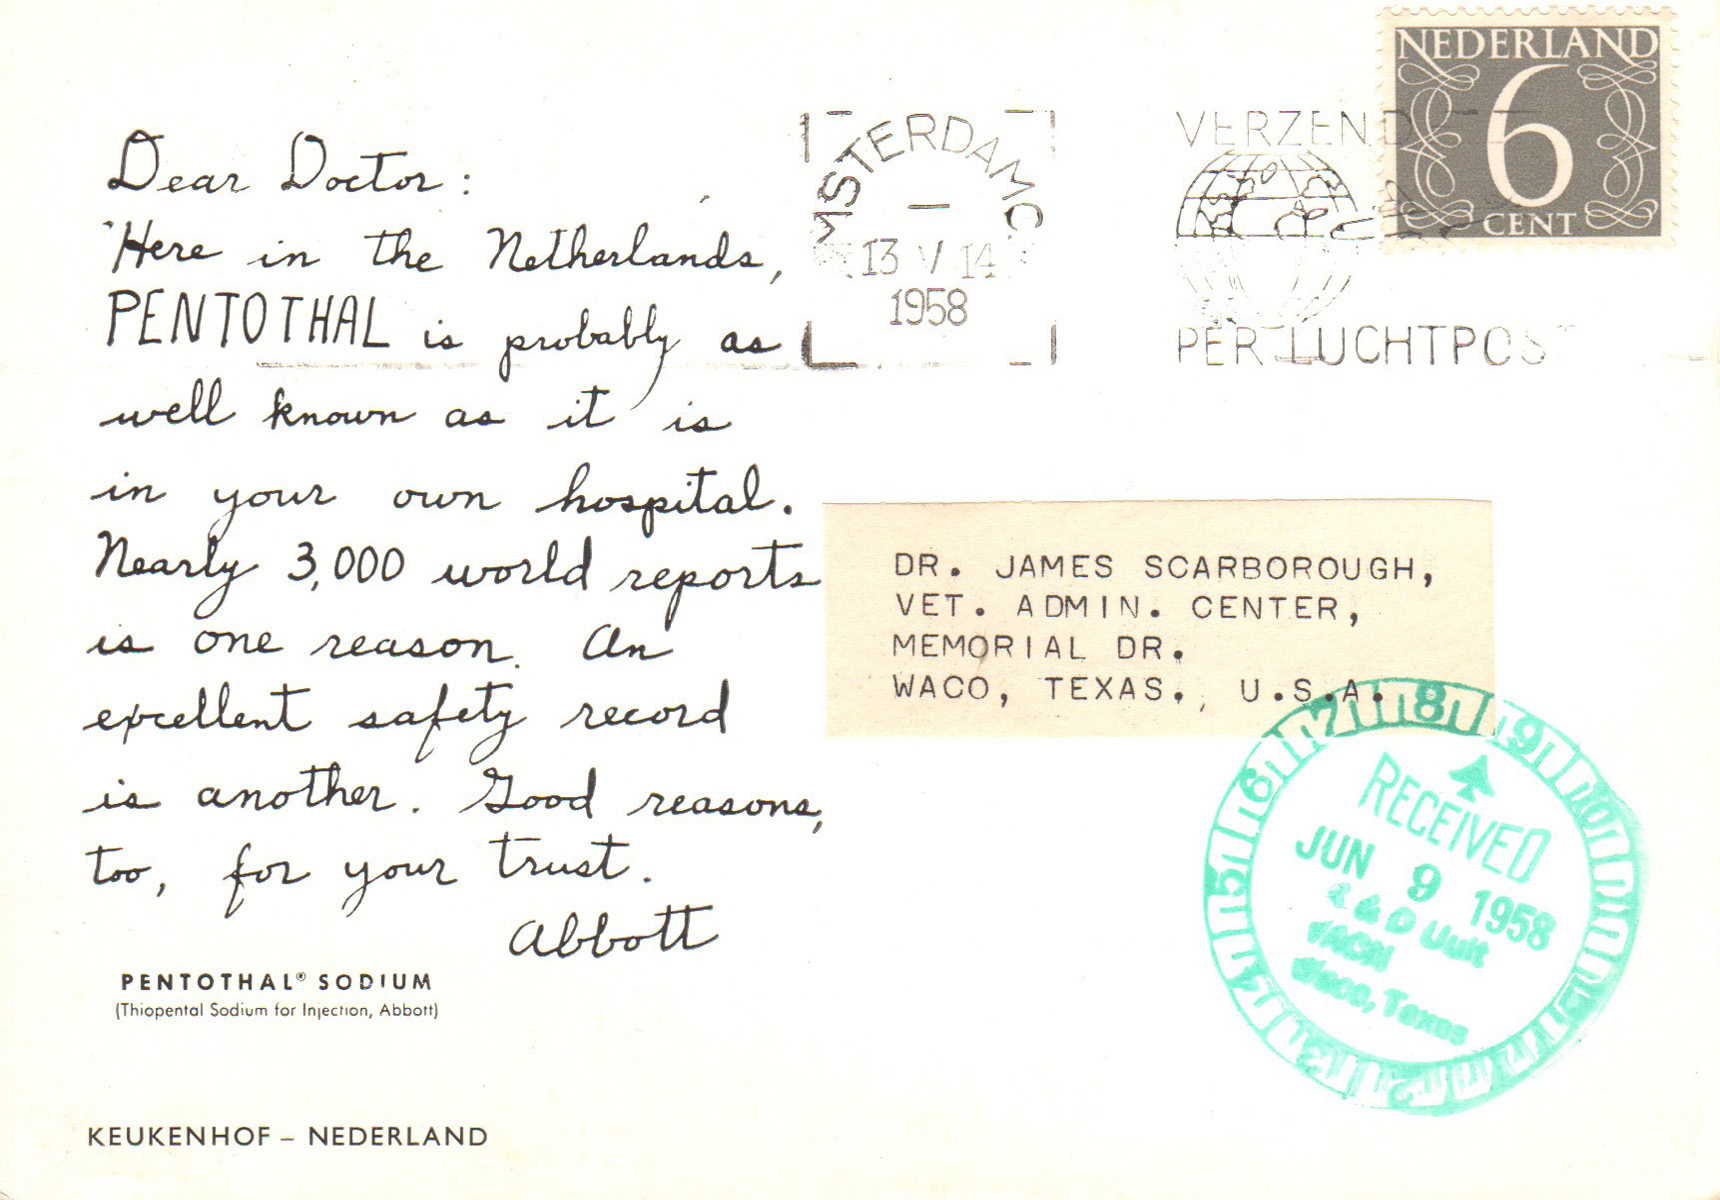 Dear Doctor:
Here in the Netherlands,
PENTOTHAL is probably as
well known as it is
in your own hospital.
Nearly 3,000 world reports
is one reason. An
excellent safety record
is another. Good reasons,
too, for your trust.
Abbott
PENTOTHAL® SODIUM
(Thiopental Sodium for Injection, Abbott)
KEUKENHOF – NEDERLAND
MSTERDAM C
13 V 14
1958
VERZEND
PER LUCHTPOS
NEDERLAND
6
CENT
DR. JAMES SCARBOROUGH,
VET. ADMIN. CENTER,
MEMORIAL DR.
WACO, TEXAS, U.S.A.
RECEIVED
JUN 9 1958
& D Unit
VACH
Waco, Texas
5 6 7 8 9 10